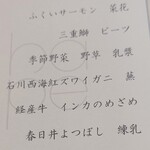 ふくいサーモン 菜花
三重鰤 ビーツ
季節野菜 野草 乳漿
石川西海紅ズワイガニ 蕪
経産牛 インカのめざめ
春日井よつぼし 練乳